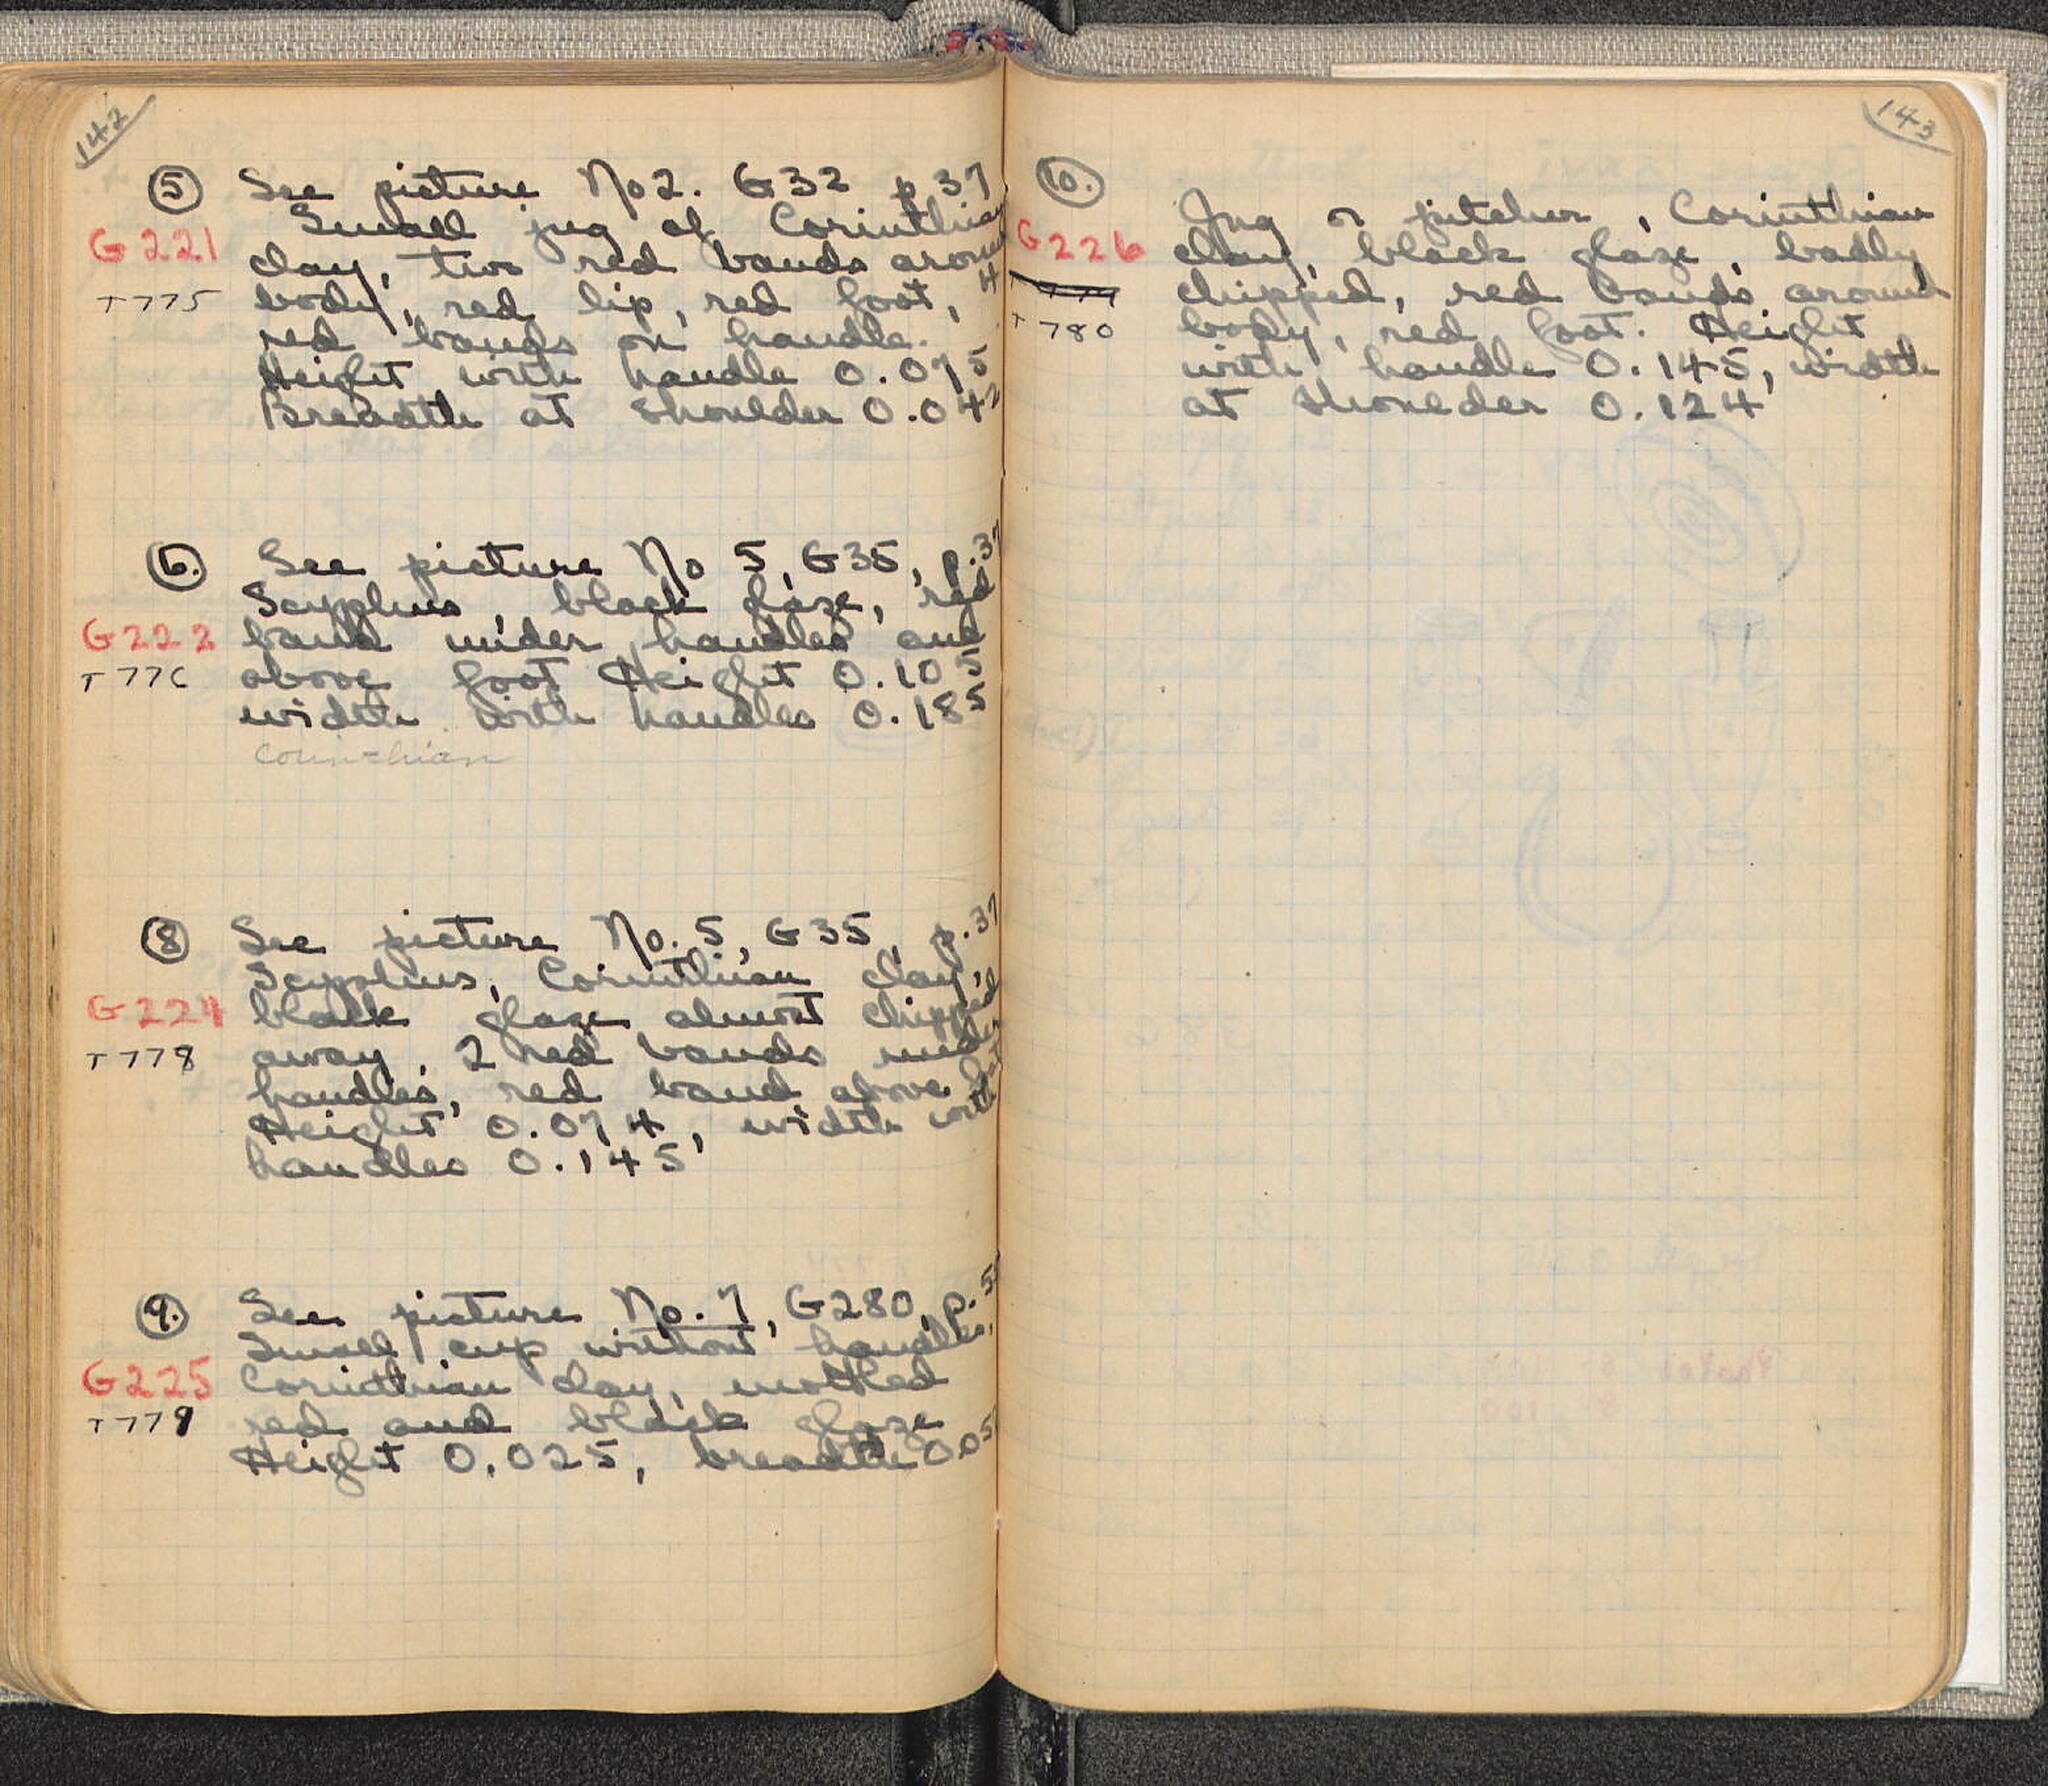 142
5 See picture No 2. G32 p 37
G221 Small jug of Corinthian
clay, two red bands around
T 775 body, red lip, red foot, 4
red bands on handle.
Height with handle 0.075
Breadth at shoulder 0.042
6. See picture No 5, G35, p. 37
Scyphus, black glaze, red
G222 band under handles and
T 776 above foot Height 0.105
width with handles 0.185
Corinthian
8 See picture No. 5, G35, p. 37
Scyphus, Corinthian clay,
G224 black glaze almost chipped
T 778 away, 2 red bands under
handles, red band above foot
Height 0.074, width with
handles 0.145
9. See picture No. 7, G280, p.
Small cup without handles,
G225 Corinthian clay, mottled
T 779 red and black glaze
Height 0.025, breadth 0.05
143
10.
Jug or pitcher, Corinthian
G226 clay, black glaze, badly
chipped, red bands around
T 780 body, red foot. Height
with handle 0.145, width
at shoulder 0.124